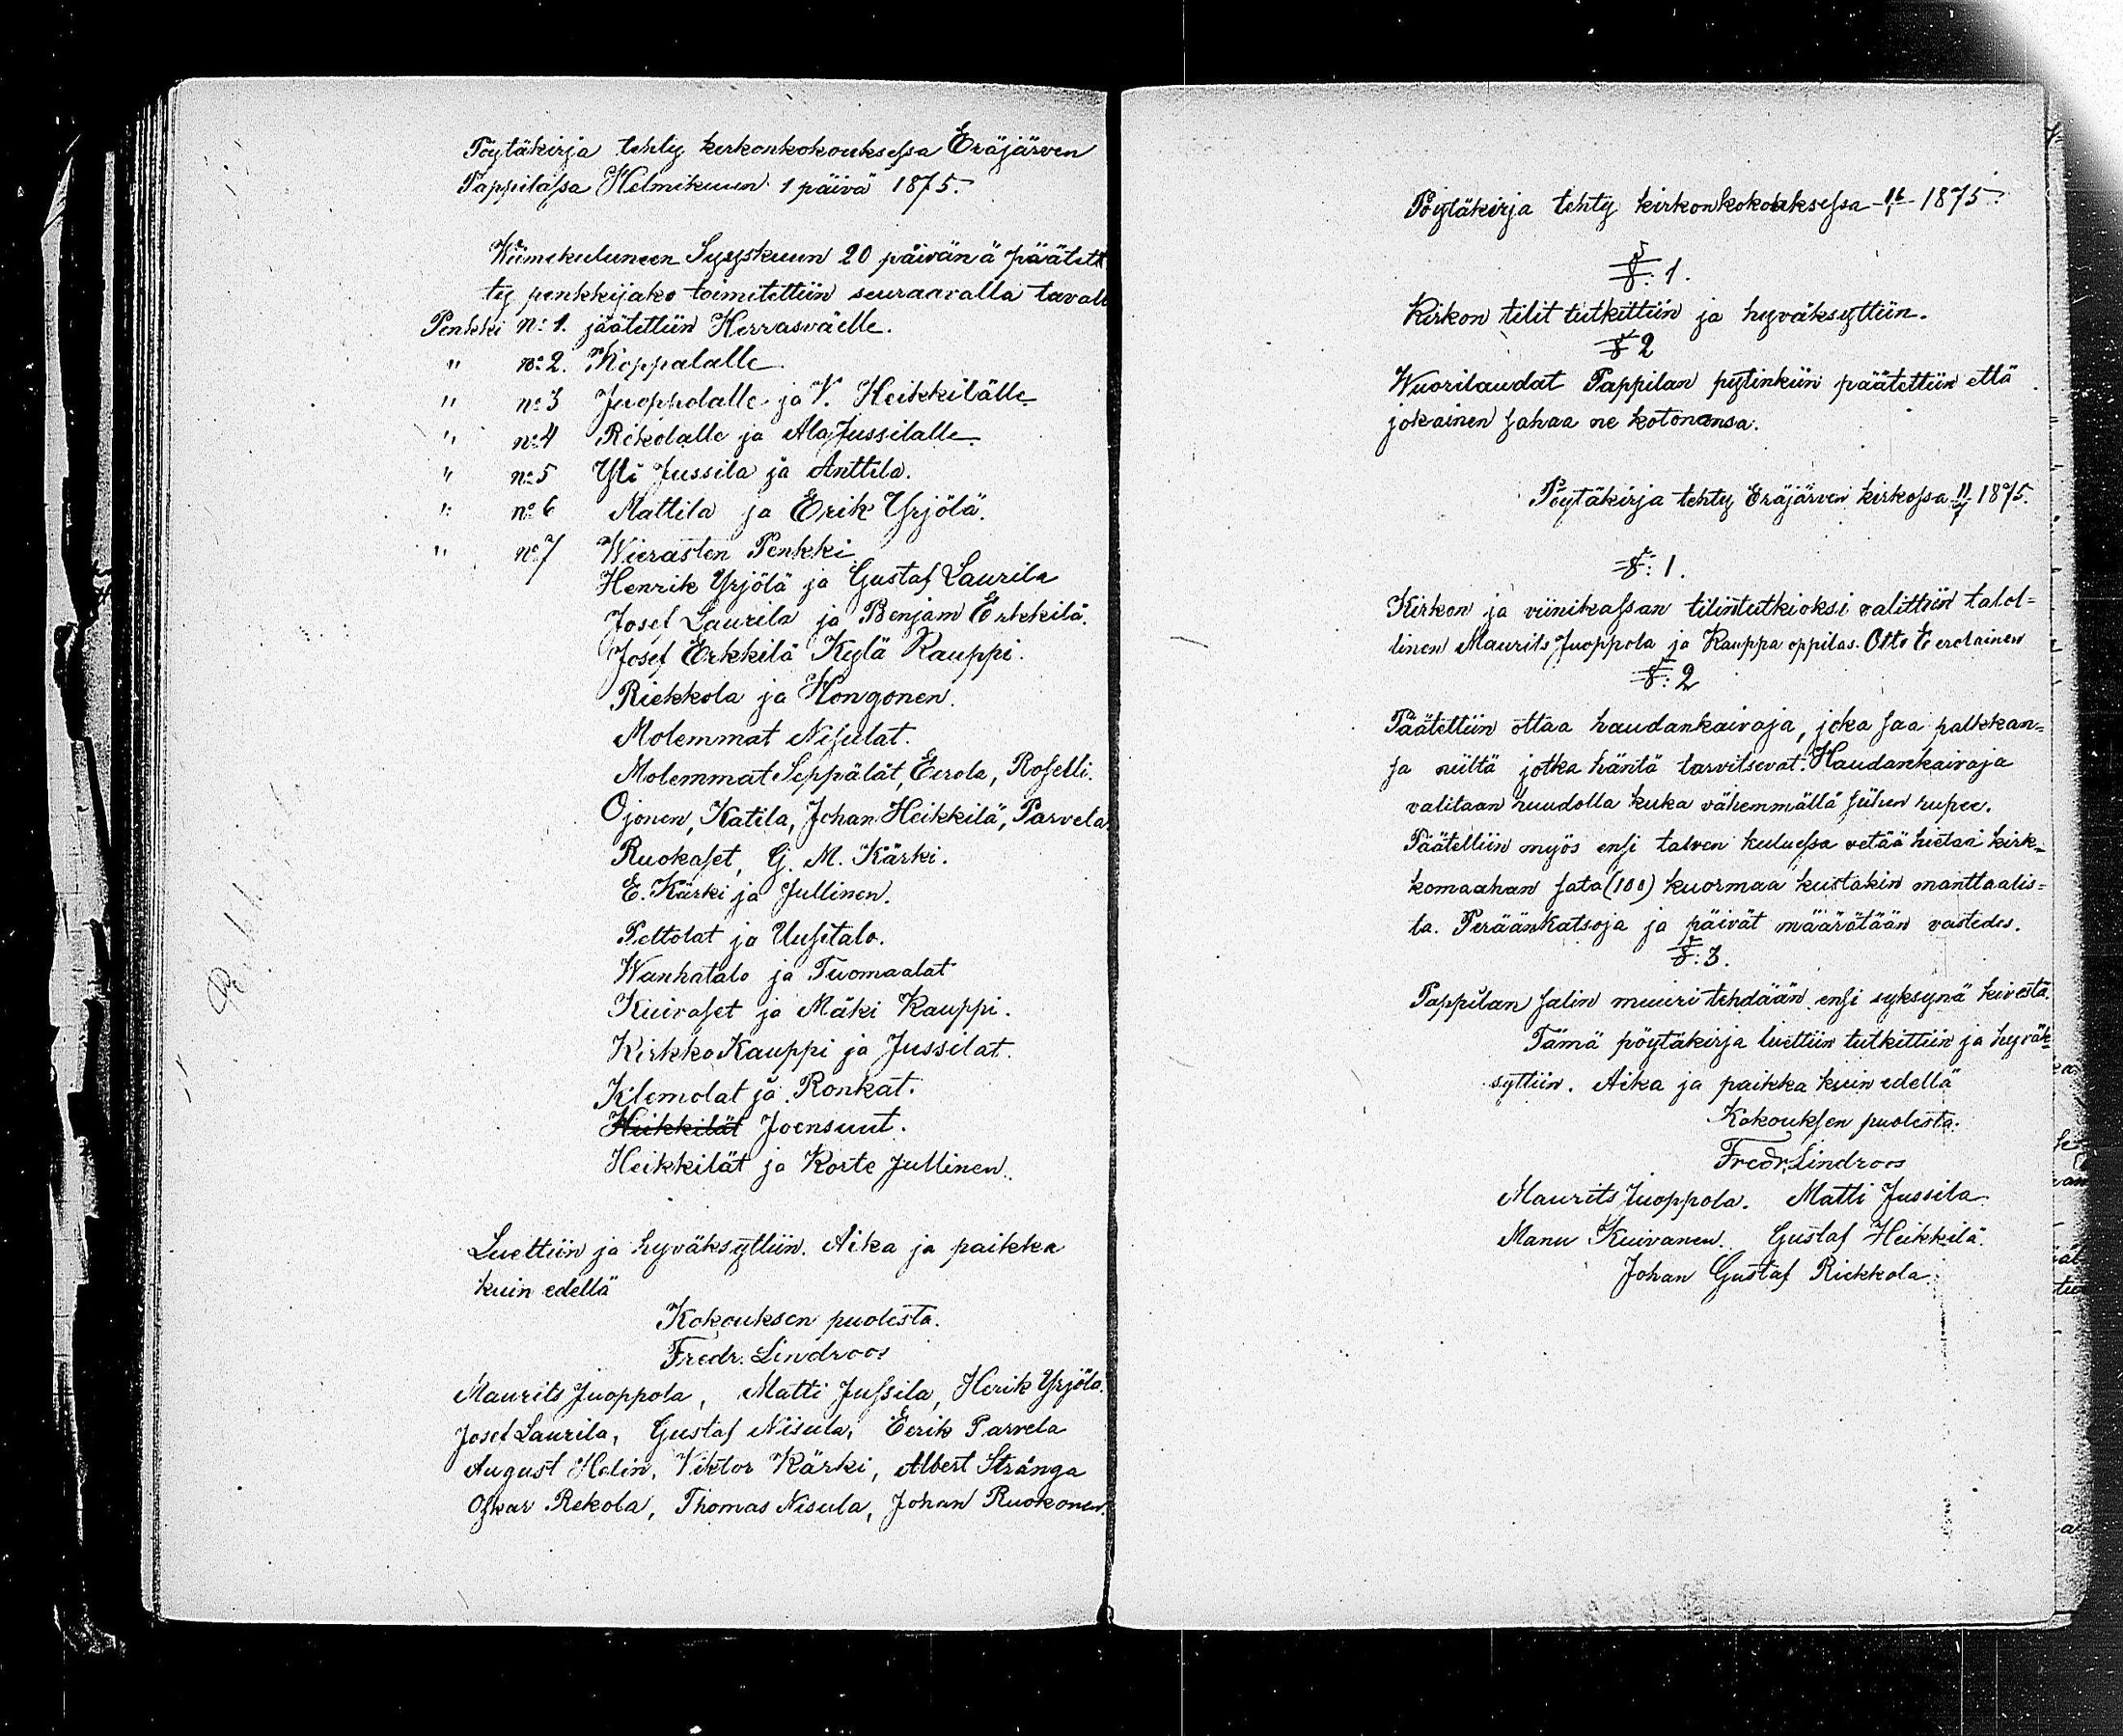 Pöytäkirja tehty kirkonkokouksessa Eräjärven
Pappilassa Helmikuun 1 päivä 1875.
Wiimekuluneen Syyskuun 20 päivänä päätett
ty penkkijako toimitettiin seuraavalla taval
Penkki No: 1. jäätettiin Herrasväelle.
" no: 2. Koppalalle
" no: 3 Juopholalle ja V. Heikkilälle
" no: 4 Rekolalle ja Ala Jussilalle
" no: 5 Yli Jussila ja Anttila.
" no 6 Mattila ja Erik Yrjölä.
" no 7 Wierasten Penkki
Henrik Yrjölä ja Gustaf Laurila
Josef Laurila ja Benjam Erkkilä.
Josef Erkkilä Kylä Kauppi.
Riekkola ja Hongonen.
Molemmat Nisulat.
Molemmat Seppälät, Eerola, Roselli.
Ojonen, Katila, Johan Heikkilä, Parvela
Ruokaset, G. M. Kärki.
E. Kärki ja Jullinen.
Peltolat ja Uusitalo.
Wanhatalo ja Tuomaalat
Kuivaset ja Mäki Kauppi.
Kirkko Kauppi ja Jussilat.
Klemolat ja Ronkat.
Heikkilät Joensuut.
Heikkilät ja Korte Jullinen.
Luettiin ja hyväksyttiin. Aika ja paikka
kuin edellä
Kokouksen puolesta.
Fredr. Lindroos
Maurits Juoppola, Matti Jussila, Herik Yrjölä.
Josef Laurila, Gustaf Nisula, Eerik Parvela
August Helin, Viktor Kärki, Albert Stränga
Oskar Rekola, Thomas Nisula, Johan Ruokonen.
Pöytäkirja tehty kirkonkokouksessa 1875.
§: 1.
Kirkon tilit tutkittiin ja hyväksyttiin.
§ 2
Wuorilaudat Pappilan pytinkiin päätettiin että
jokainen sahaa ne kotonansa.
Pöytäkirja tehty Eräjärven kirkossa 11/7 1875.
§: 1.
Kirkon ja viinikassan tilintutkioksi valittiin talol=
linen Maurits Juoppola ja Kauppa oppilas. Otto Eerolainen
§: 2
Päätettiin ottaa haudankaivaja, joka saa palkkan=
sa niiltä jotka häntä tarvitsevat. Haudankaivaja
valitaan huudolla kuka vähemmällä siihen rupee.
Päätettiin myös ensi talven kuluessa vetää hietaa kirk=
komaahan sata (100) kuormaa kustakin manttaalis=
ta. Peräänkatsoja ja päivät määrätään vastedes.
§: 3.
Pappilan salin muuri tehdään ensi syksynä kivestä.
Tämä pöytäkirja luettiin tutkittiin ja hyväk=
syttiin. Aika ja paikka kuin edellä
Kokouksen puolesta.
Fredr. Lindroos
Maurits Juoppola. Matti Jussila.
Manu Kuivanen. Gustaf Heikkilä.
Johan Gustaf Riekkola.